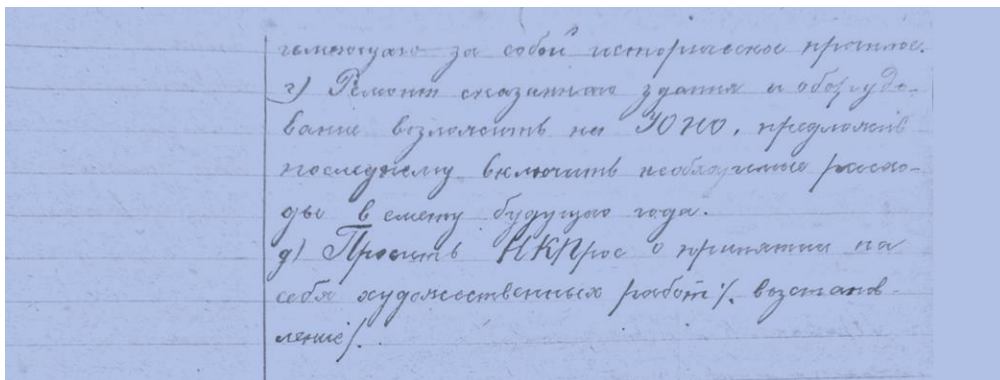 имеющаго за собой историческое прошлое.
г) Ремонт сказаннаго здания и оборудо-
вание возложить на УОНО, предложив
последнему включить необходимые расхо-
ды в смету будущаго года.
д) Просить НКПрос о принятии на
себя художественных работ /. возстанов-
ление /.